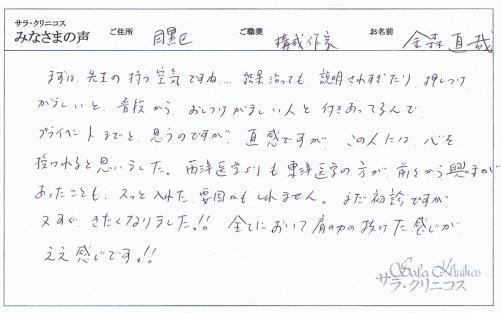 サラ・クリニコス
みなさまの声 ご住所 目黒区 ご職業 構成作家 お名前 金森直哉
まずは、先生の持つ空気ですね… 結果治っても、説明されすぎたり、押しつけ
がましいと、普段から、おしつけがましい人と付きあってるんで、
プライベートまでと、思うのですが、直感ですが、この人には、心を
授けれると思いました。西洋医学よりも東洋医学の方が、前々から興味が
あったことも、スッと入れた要因かもしれません。まだ初診ですが
又すぐ、きたくなりました!! 全てにおいて肩の力の抜けた感じが、
ええ感じです!!
Sala Klinikos
サラ・クリニコス